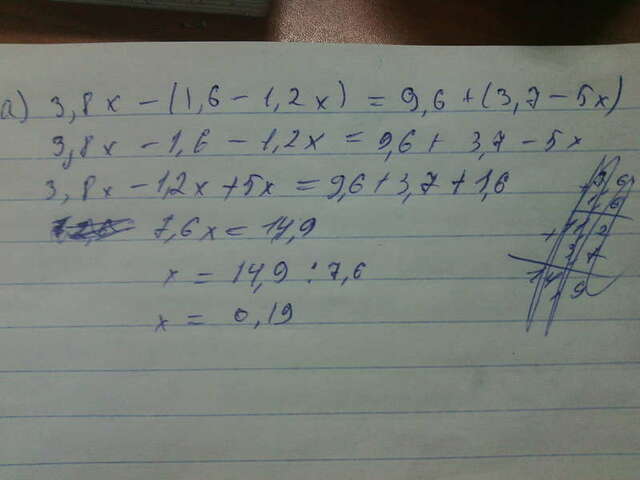 а) 3,8x - (1,6 - 1,2x) = 9,6 + (3,7 - 5x)
3,8x - 1,6 - 1,2x = 9,6 + 3,7 - 5x
3,8x - 1,2x + 5x = 9,6 + 3,7 + 1,6
7,6x = 14,9
x = 14,9 : 7,6
x = 0,19